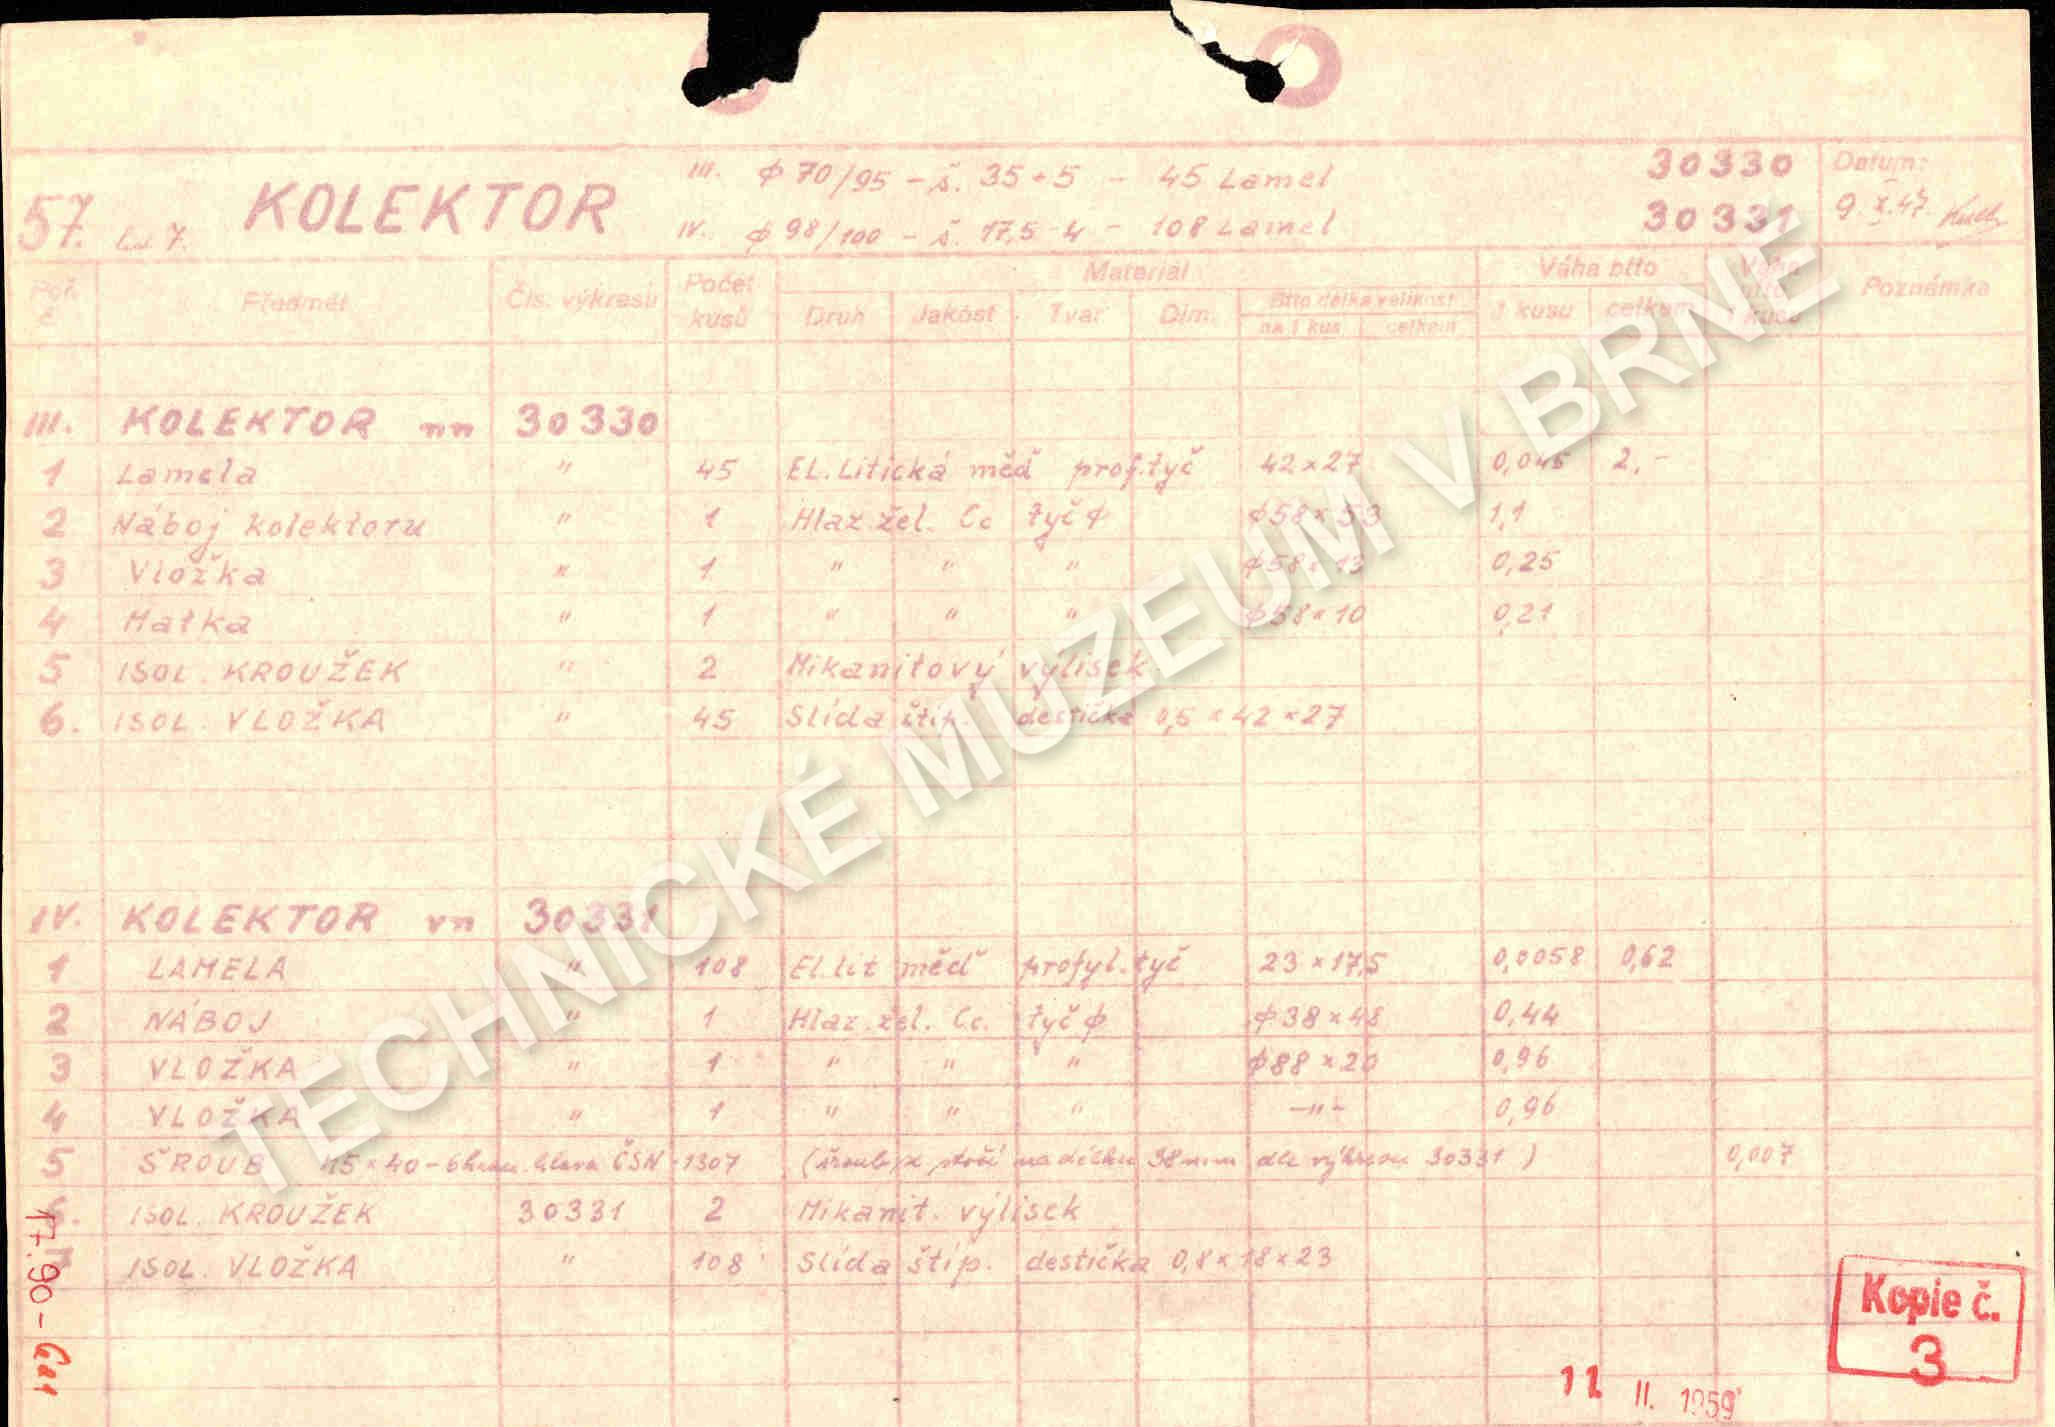 III. φ 70/95 – š. 35+5 – 45 Lamel 30330 Datum:
57. KOLEKTOR
IV. φ 98/100 – š. 17,5-4 – 108 Lamel 30331 9. X. 47.
Poř. č. Předmět Čís. výkresu Počet kusů Materiál Váha btto Váha ntto 1 kusu Poznámka
Druh Jakost Tvar Dim. Btto délka velikost 1 kusu celkem
na 1 kus celkem
III. KOLEKTOR nn 30330
1 Lamela " 45 El. Litická měď prof. tyč 42×27 0,045 2,-
2 Náboj kolektoru " 1 Hlaz. žel. Cc tyč φ φ58×53 1,1
3 Vložka " 1 " " " φ58×13 0,25
4 Matka " 1 " " " φ58×10 0,21
5 ISOL. KROUŽEK " 2 Mikanitový výlisek
6. ISOL. VLOŽKA " 45 Slída štíp. destička 0,5×42×27
IV. KOLEKTOR vn 30331
1 LAMELA " 108 El. lit měď profyl. tyč 23×17,5 0,0058 0,62
2 NÁBOJ " 1 Hlaz. žel. Cc. tyč φ φ38×48 0,44
3 VLOŽKA " 1 " " " φ88×20 0,96
4 VLOŽKA " 1 " " " –"– 0,96
5 ŠROUB M5×40 – 6hran. hlava ČSN-1307 (šroub se stočí na délku 38mm dle výkresu 30331) 0,007
6. ISOL. KROUŽEK 30331 2 Mikanit. výlisek
ISOL. VLOŽKA " 108 Slída štíp. destička 0,8×18×23
17.90-
Kopie č.
3
11 II. 1959
TECHNICKÉ MUZEUM V BRNĚ